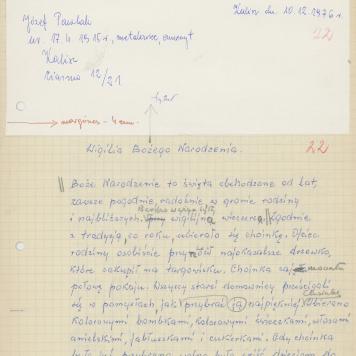 Kalisz dn. 10.12.1976 r.
Józef Pawlak
ur. 17.4.1915 r., metalowiec, emeryt
22
Kalisz
Ciasna 12/21
tytuł
margines - 4 cm.
Wigilia Bożego Narodzenia.
22
Boże Narodzenie to święta obchodzone od lat,
zawsze pogodnie, radośnie w gronie rodziny
i najbliższych. wigilijną wieczerzą. Zgodnie
z tradycją, co roku, ubierało się choinkę. Ojciec
rodziny osobiście przyniósł najokazalsze drzewko,
które zakupił na targowisku. Choinka zajmowała
połowę pokoju. Wszyscy starsi domownicy prześcigali
się w pomysłach, jak przybrać ją najpiękniej. Ubierano
kolorowymi bombkami, kolorowymi świeczkami, włosami
anielskimi, jabłuszkami i cukierkami. Gdy choinka
była już